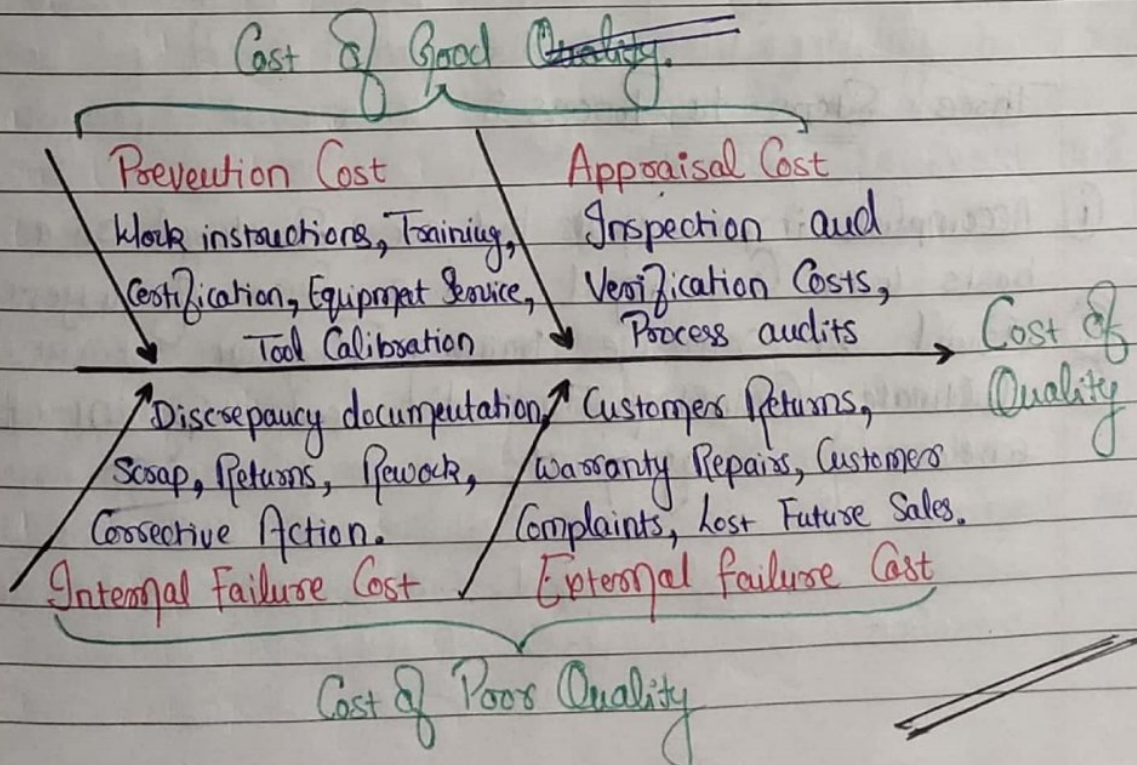 Cost of Good Quality.
Prevention Cost
Work instructions, Training,
Certification, Equipmet Service,
Tool Calibration
Appraisal Cost
Inspection and
Verification Costs,
Process audits
Cost of
Quality
Discrepancy documentation,
Scrap, Returns, Rework,
Corrective Action.
Internal Failure Cost
Customer Returns,
Warranty Repairs, Customer
Complaints, Lost Future Sales.
External failure Cost
Cost of Poor Quality